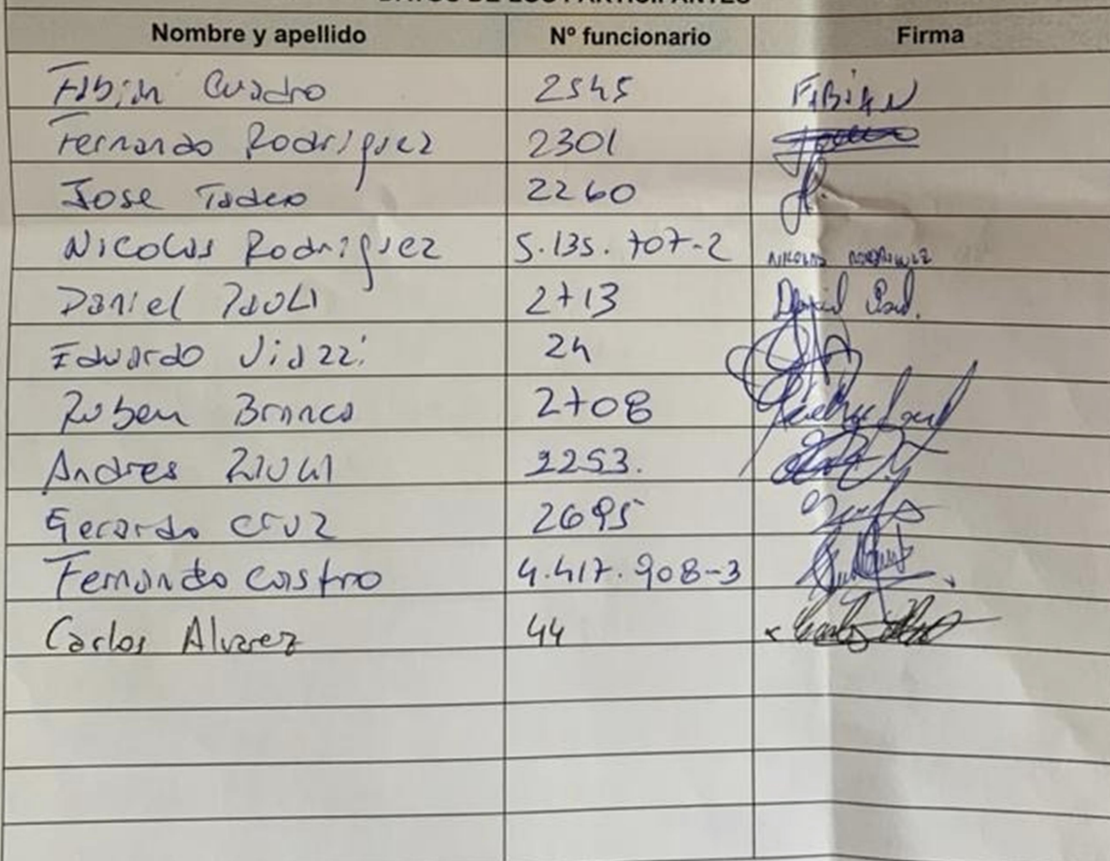 DATOS DE LOS PARTICIPANTES
Nombre y apellido Nº funcionario Firma
Fabian Cuadro 2545 FABIAN
Fernando Rodriguez 2301
Jose Tadeo 2260
Nicolas Rodriguez 5.135.707-2 NICOLAS RODRIGUEZ
Daniel 2713 Daniel
Eduardo 24
Ruben Branca 2708
Andres 2253.
Gerardo Cruz 2695
Fernando Castro 4.417.908-3
Carlos Alvarez 44